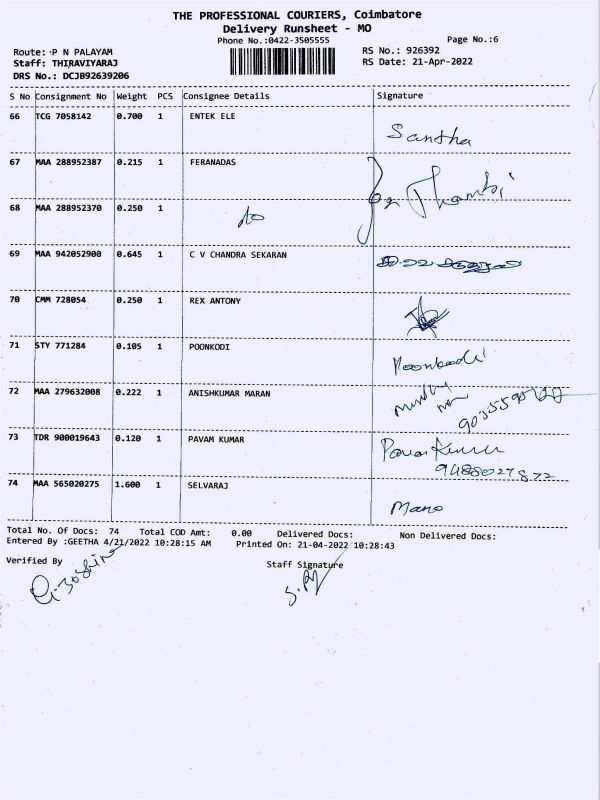 THE PROFESSIONAL COURIERS, Coimbatore
Delivery Runsheet - MO
Phone No.:0422-3505555
Page No.:6
Route: P N PALAYAM
RS No.: 926392
Staff: THIRAVIYARAJ
RS Date: 21-Apr-2022
DRS No.: DCJB92639206
S No Consignment No Weight PCS Consignee Details Signature
66 TCG 7058142 0.700 1 ENTEK ELE
Santha
67 MAA 288952387 0.215 1 FERANADAS
Thambi
68 MAA 288952370 0.250 1
do
69 MAA 942052900 0.645 1 C V CHANDRA SEKARAN
70 CMM 728054 0.250 1 REX ANTONY
71 STY 771284 0.105 1 POONKODI
Poonkodi
72 MAA 279632008 0.222 1 ANISHKUMAR MARAN
73 TDR 900019643 0.120 1 PAVAM KUMAR
Pavan Kumar
9488027872
74 MAA 565020275 1.600 1 SELVARAJ
Mano
Total No. Of Docs: 74 Total COD Amt: 0.00 Delivered Docs: Non Delivered Docs:
Entered By :GEETHA 4/21/2022 10:28:15 AM Printed On: 21-04-2022 10:28:43
Verified By
Staff Signature